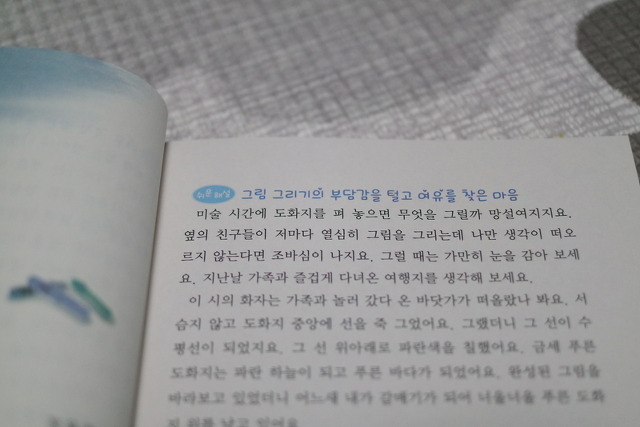 쉬운 해설 그림 그리기의 부담감을 털고 여유를 찾은 마음
미술 시간에 도화지를 펴 놓으면 무엇을 그릴까 망설여지지요.
옆의 친구들이 저마다 열심히 그림을 그리는데 나만 생각이 떠오
르지 않는다면 조바심이 나지요. 그럴 때는 가만히 눈을 감아 보세
요. 지난날 가족과 즐겁게 다녀온 여행지를 생각해 보세요.
이 시의 화자는 가족과 놀러 갔다 온 바닷가가 떠올랐나 봐요. 서
슴지 않고 도화지 중앙에 선을 죽 그었어요. 그랬더니 그 선이 수
평선이 되었지요. 그 선 위아래로 파란색을 칠했어요. 금세 푸른
도화지는 파란 하늘이 되고 푸른 바다가 되었어요. 완성된 그림을
바라보고 있었더니 어느새 내가 갈매기가 되어 너울너울 푸른 도화
지 위를 날고 있어요